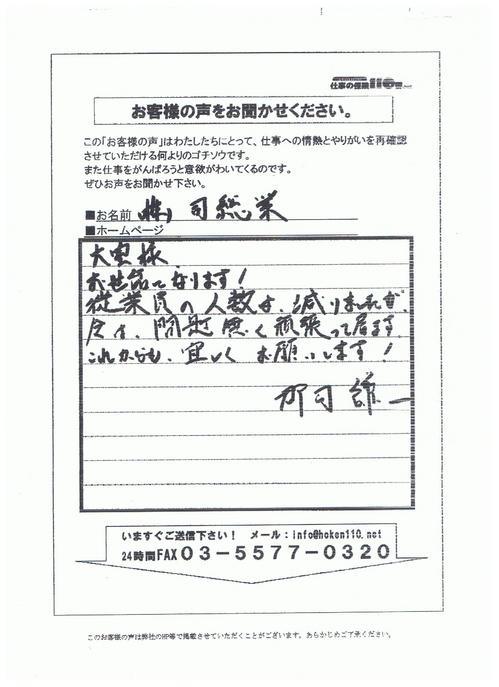 仕事の保険110番
お客様の声をお聞かせください。
この「お客様の声」はわたしたちにとって、仕事への情熱とやりがいを再確認
させていただける何よりのゴチソウです。
また仕事をがんばろうと意欲がわいてくるのです。
ぜひお声をお聞かせ下さい。
■お名前 (株) 司総業
■ホームページ
様
お世話になります!
従業員の人数は、減りましたが、
今は、問題無く頑張って居ます。
これからも、宜しくお願いします!
郡司雄一
いますぐご送信下さい! メール:info@hoken110.net
24時間FAX03-5577-0320
このお客様の声は弊社のHP等で掲載させていただくことがございます。あらかじめご了承ください。